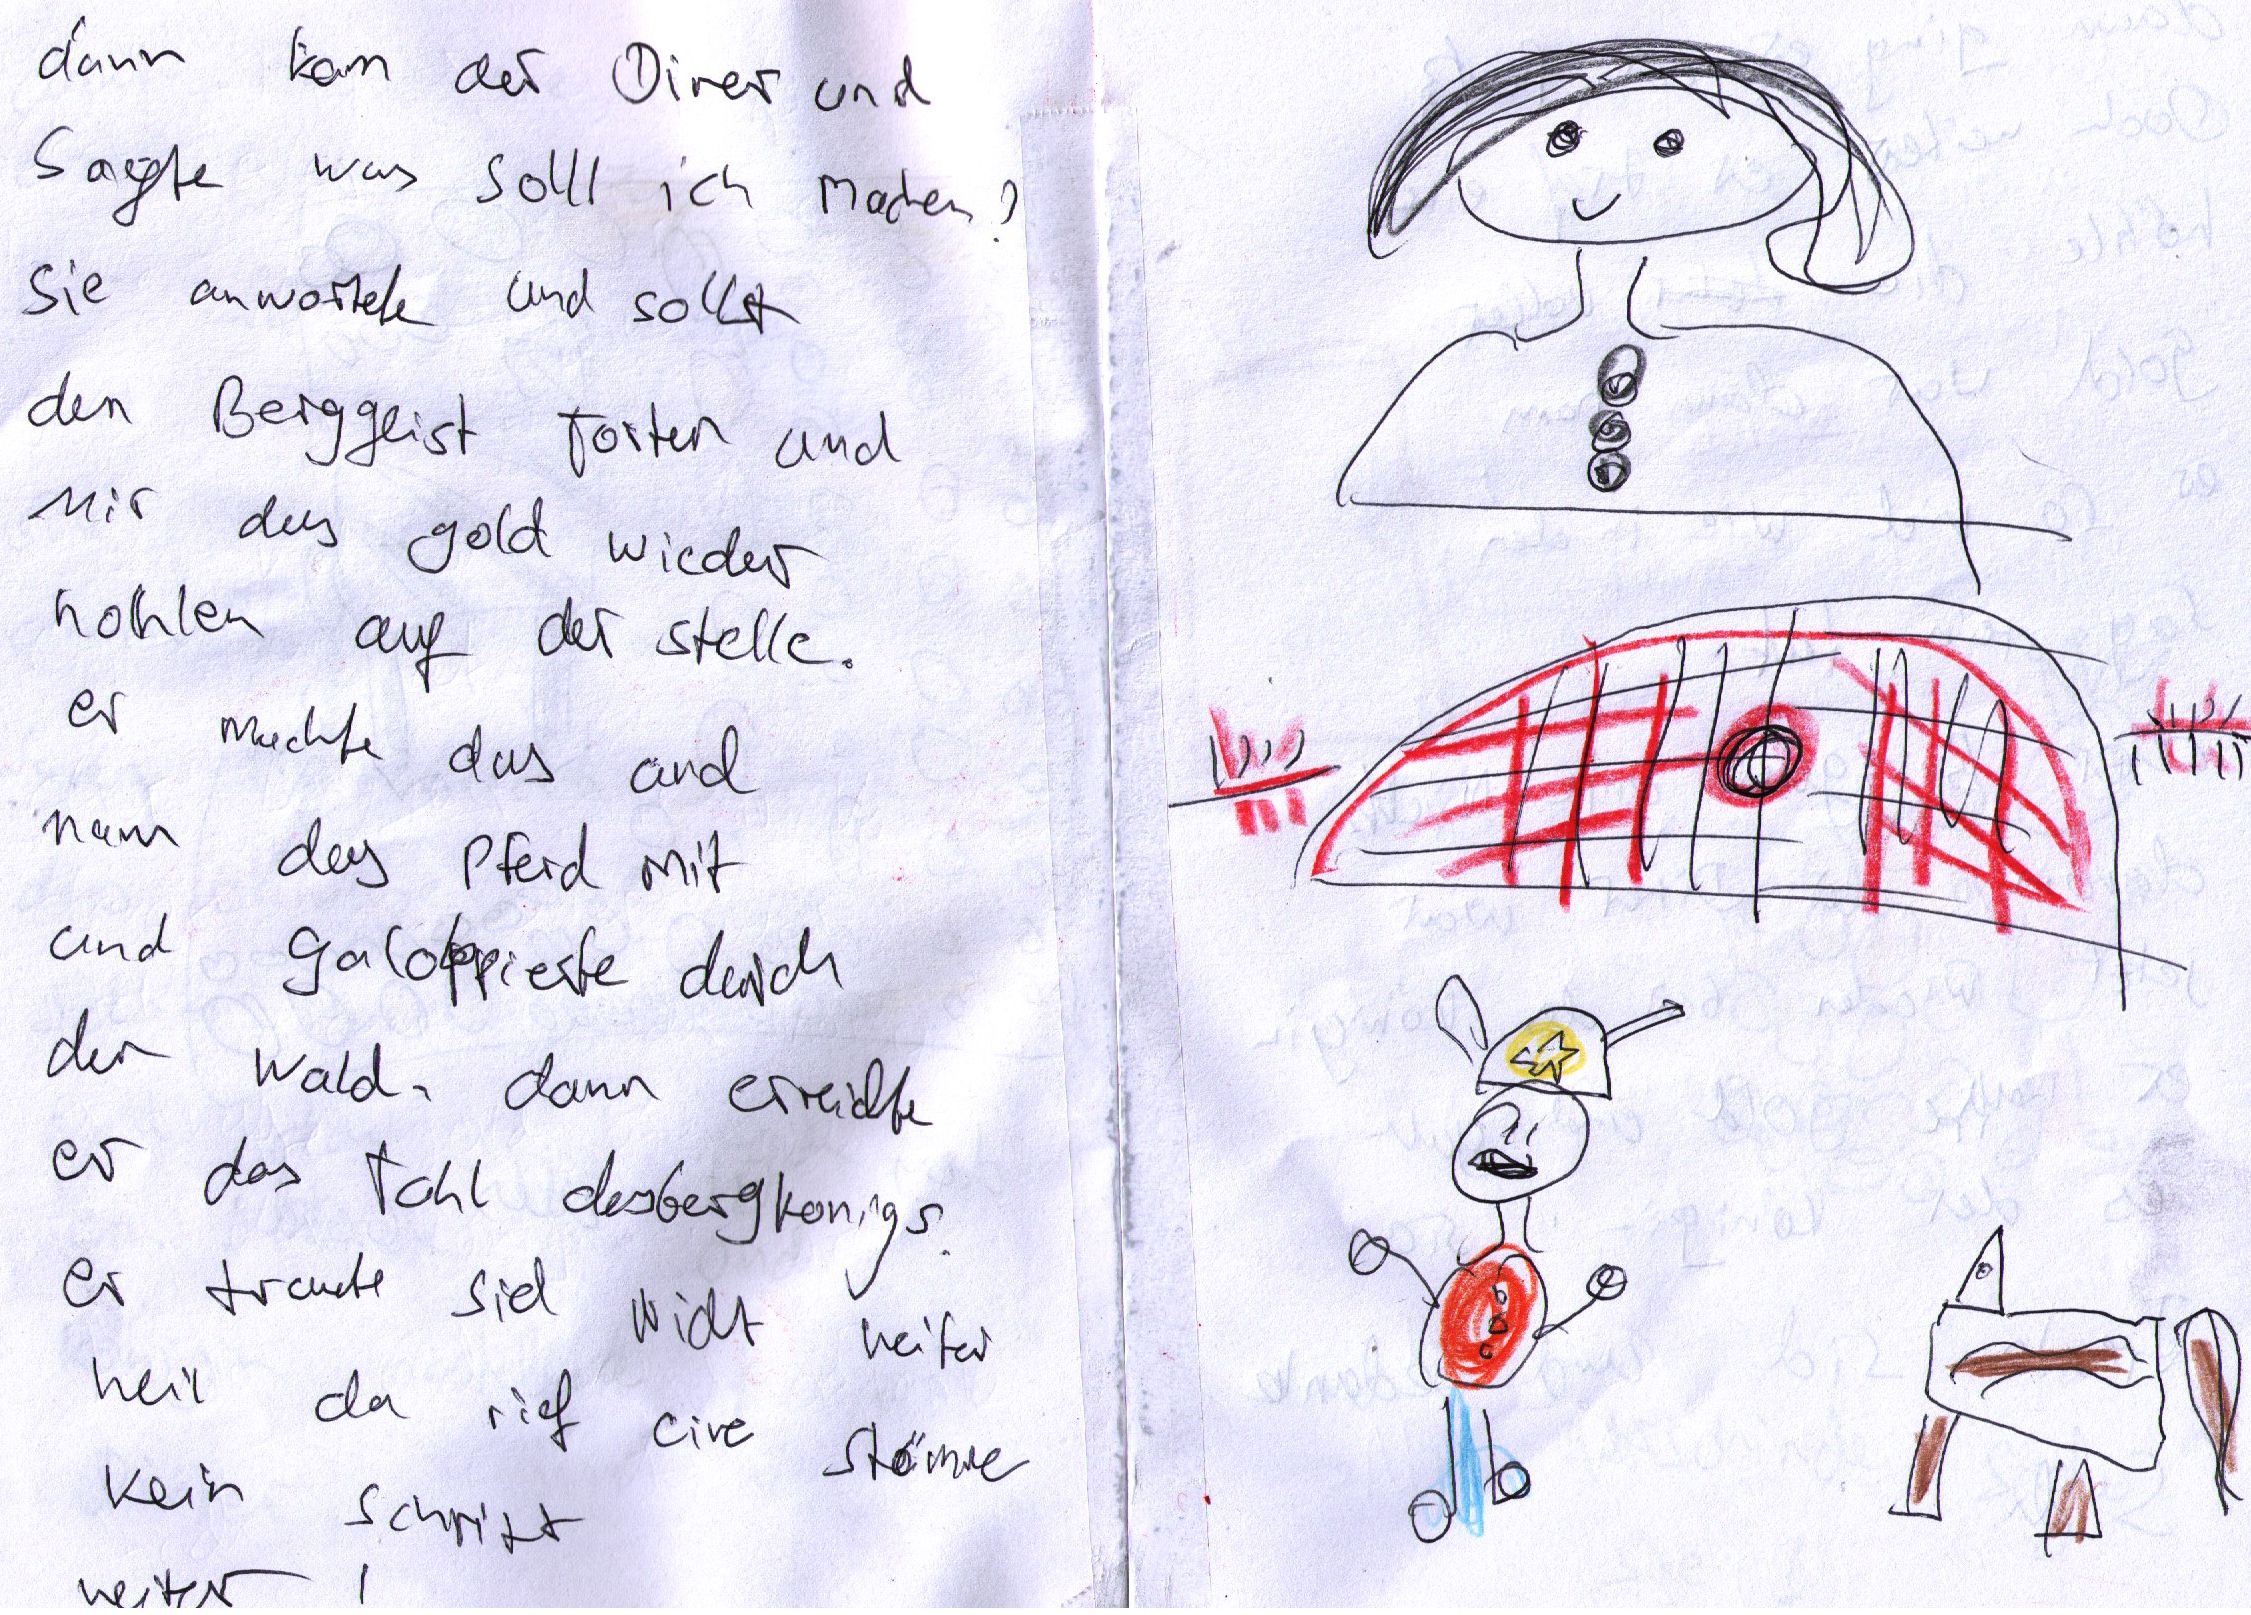 dann kam der Diner und
Sagte was solll ich machen?
Sie anwortete und sollst
den Berggeist Törten und
Mir das gold wieder
hohlen auf der stelle.
er machte das und
nam das Pferd mit
und galoppierte durch
den Wald. dann erreichte
er das Tahl desbergkönigs.
er traute sich nicht weiter
weil da rief eine stömme
kein schritt
weiter!